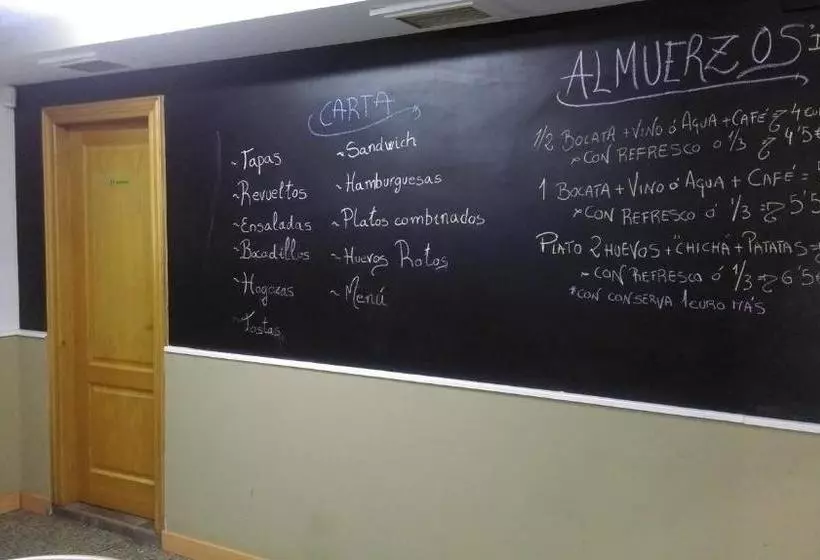 CARTA
~Tapas
~Revueltos
~Ensaladas
~Bocadillos
~Hogazas
~Tostas
~Sandwich
~Hamburguesas
~Platos combinados
~Huevos Rotos
~Menú
ALMUERZOS
1/2 BOCATA + VINO ó AGUA + CAFÉ 4
CON REFRESCO o 1/3 4'5€
1 BOCATA + VINO ó AGUA + CAFÉ =
CON REFRESCO ó 1/3 = 5'5
PLATO 2 HUEVOS + "CHICHA" + PATATAS =
~CON REFRESCO ó 1/3 = 6'5€
*CON CONSERVA 1 EURO MÁS